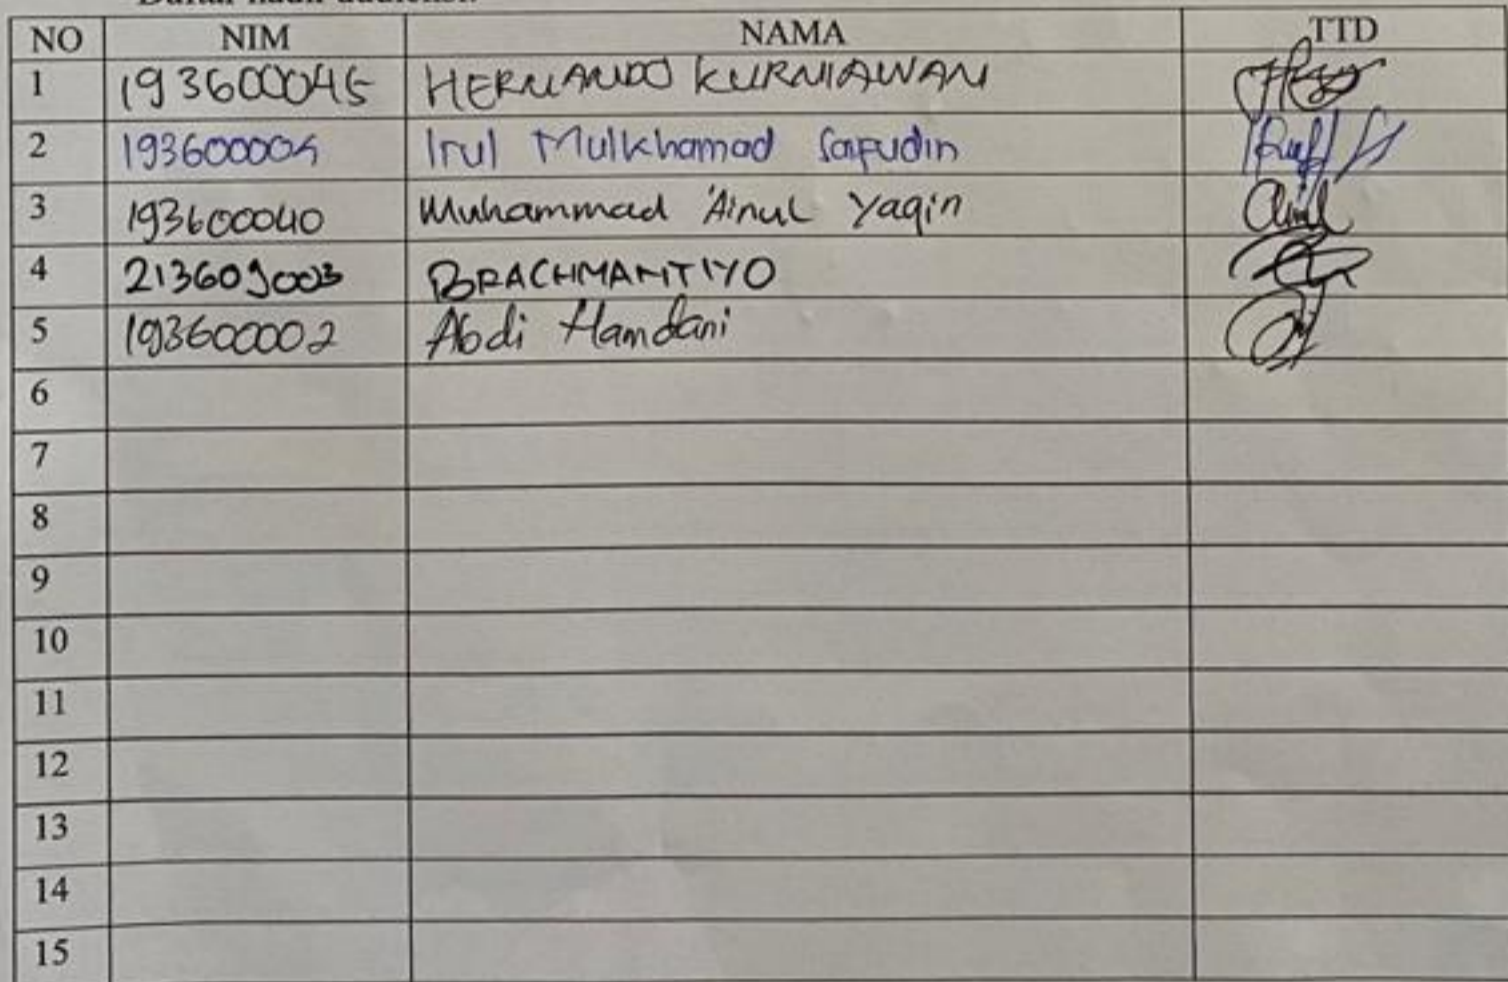 NO NIM NAMA TTD
1 193600045 HERNANDO KURNIAWAN
2 193600004 Irul Mulkhamad Saepudin
3 193600040 Muhammad 'Ainul Yaqin
4 213609003 BRACHMANTIYO
5 193600002 Abdi Hamdani
6
7
8
9
10
11
12
13
14
15